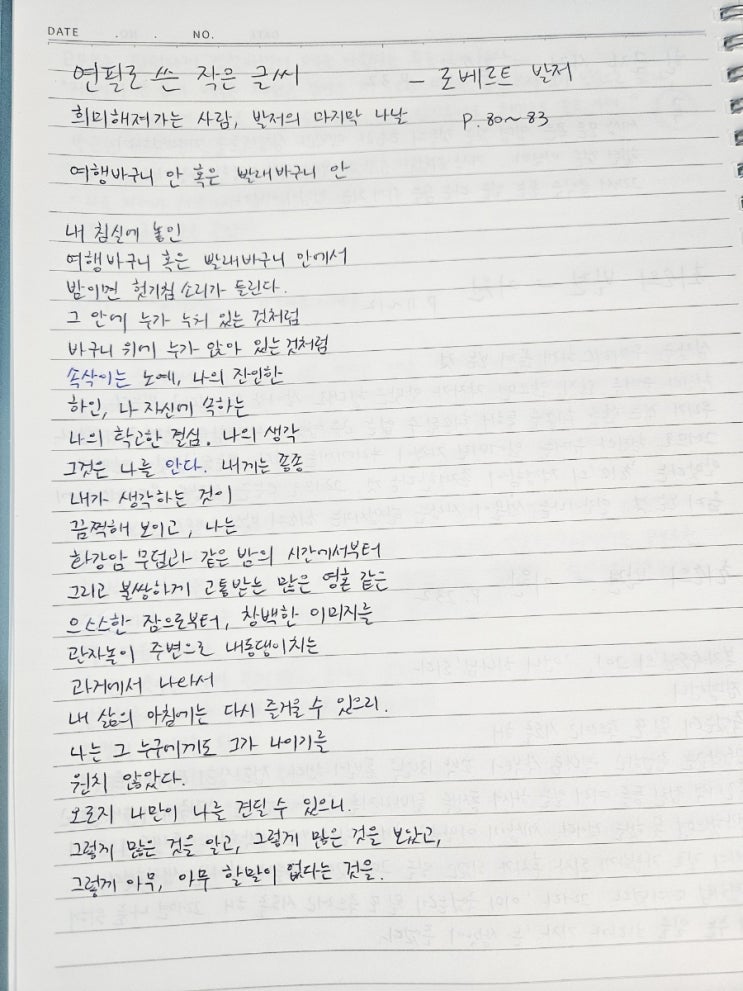 DATE . . NO.
연필로 쓴 작은 글씨 - 로베르트 발저
희미해져가는 사람, 발저의 마지막 나날 P.80~83
여행바구니 안 혹은 빨래바구니 안
내 침실에 놓인
여행바구니 혹은 빨래바구니 안에서
밤이면 헛기침 소리가 들린다.
그 안에 누가 누워 있는 것처럼
바구니 위에 누가 앉아 있는것처럼
속삭이는 노예, 나의 진인한
하인, 나 자신에 속하는
나의 확고한 결심. 나의 생각
그것은 나를 안다. 내게는 종종
내가 생각하는 것이
끔찍해 보이고, 나는
화강암 무덤과 같은 밤의 시간에서부터
그리고 불쌍하게 고통받는 많은 영혼 같은
으스스한 잠으로부터, 창백한 이미지를
관자놀이 주변으로 내동댕이치는
과거에서 나와서
내 삶의 아침에는 다시 즐거울 수 있으리.
나는 그 누구에게도 그가 나이기를
원치 않았다.
오로지 나만이 나를 견딜 수 있으니..
그렇게 많은 것을 알고, 그렇게 많은 것을 보았고,
그렇게 아무, 아무 할말이 없다는 것을.